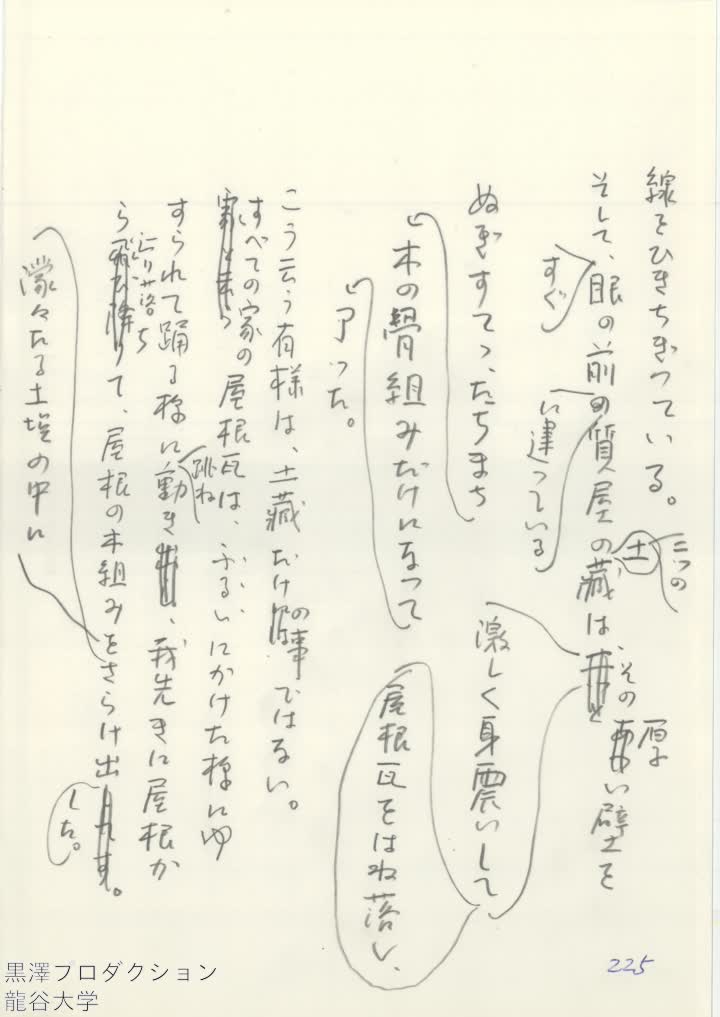 線をひきちぎつている。
そして、眼の前の質屋の藏は、その厚い壁を
すぐ
に建つている
二つの
土
激しく身震いして
屋根瓦をはね落し、
ぬぎすてゝ、たちまち
木の骨組みだけになつて
了つた。
こう云う有様は、土藏だけの事ではない。
すべての家の屋根瓦は、ふるいにかけた様にゆ
すられて踊る様に動き、我先きに屋根か
跳ね
ら辷り落ちて、屋根の木組みをさらけ出
した。
濛々たる土埃の中に
225
黒澤プロダクション
龍谷大学